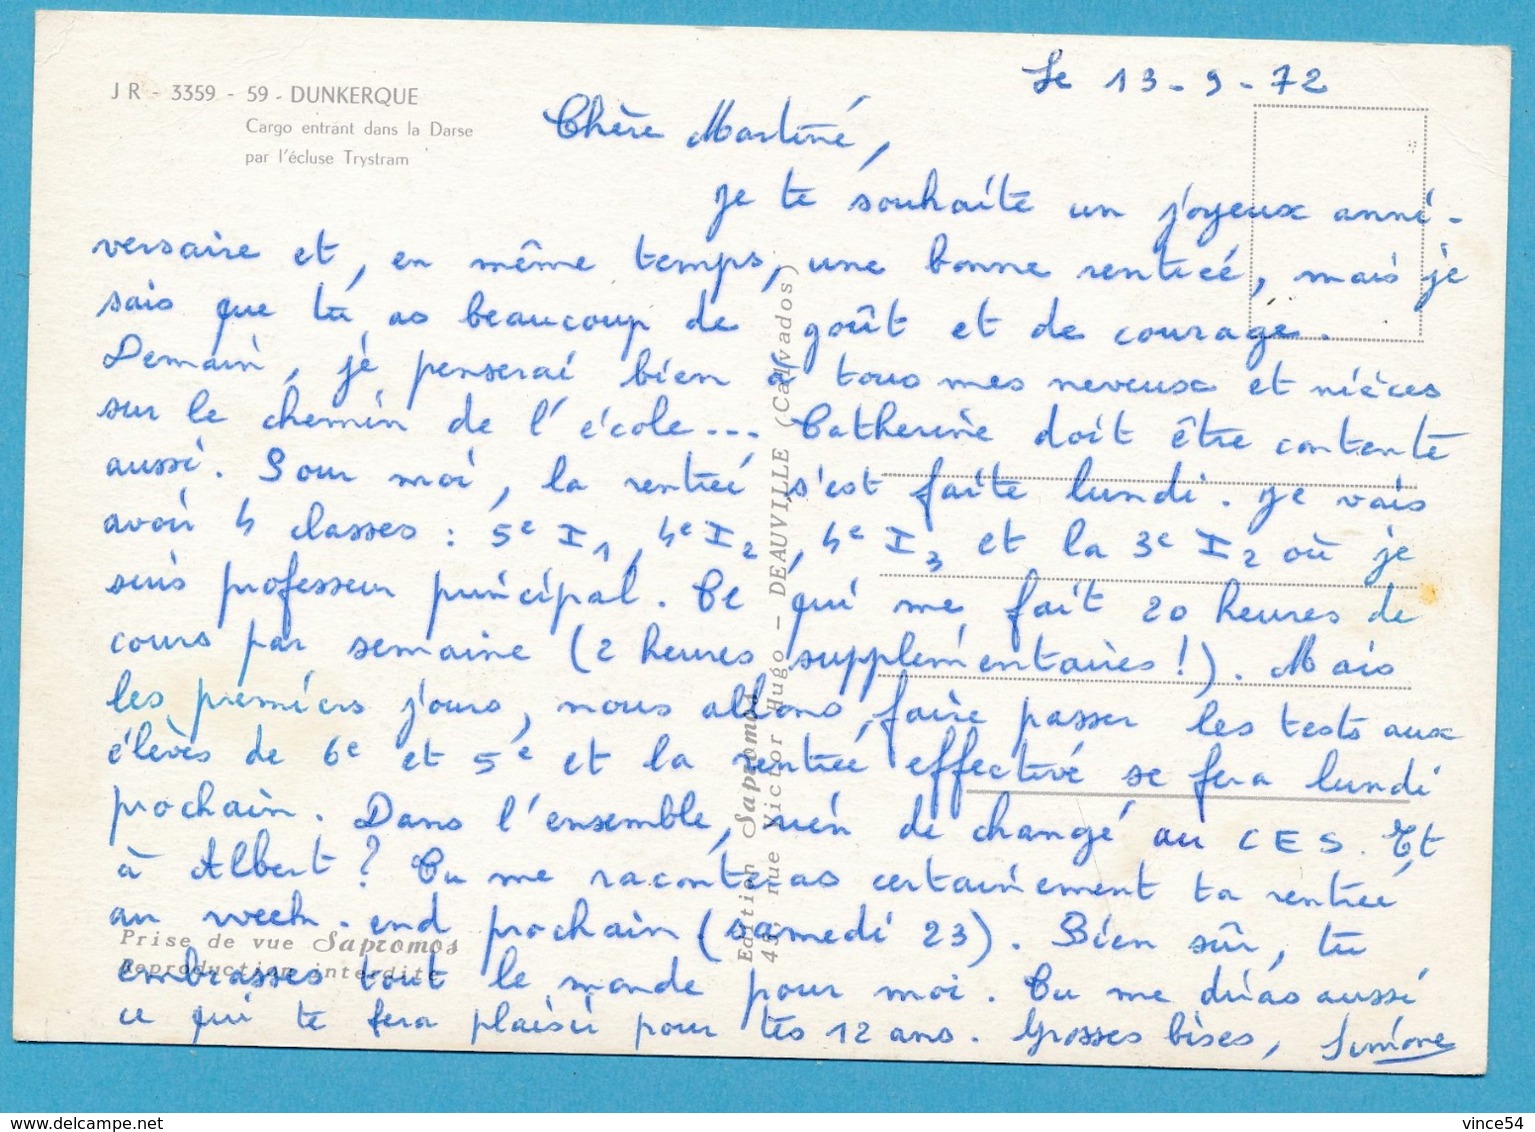 JR - 3359 - 59 - DUNKERQUE
Cargo entrant dans la Darse
par l'écluse Trystram
Le 13-9-72
Chère Martine,
je te souhaite un joyeux anni-
versaire et, en même temps, une bonne rentrée, mais je
sais que tu as beaucoup de goût et de courage.
Demain, je penserai bien à tous mes neveux et nièces
sur le chemin de l'école... Catherine doit être contente
aussi. Pour moi, la rentrée s'est faite lundi. Je vais
avoir 4 classes : 5e I1, 4e I2, 4e I3 et la 3e I2 où je
suis professeur principal. Ce qui me fait 20 heures de
cours par semaine (2 heures supplémentaires !). Mais
les premiers jours, nous allons faire passer les tests aux
élèves de 6e et 5e et la rentrée effective se fera lundi
prochain. Dans l'ensemble, rien de changé au CES. Et
à Albert ? Tu me raconteras certainement ta rentrée
au week-end prochain (samedi 23). Bien sûr, tu
embrasses tout le monde pour moi. Tu me diras aussi
ce qui te fera plaisir pour tes 12 ans. Grosses bises, Simone
Prise de vue Sapromos
Reproduction interdite
Edition Sapromos
45, rue Victor Hugo - DEAUVILLE (Calvados)
vince54